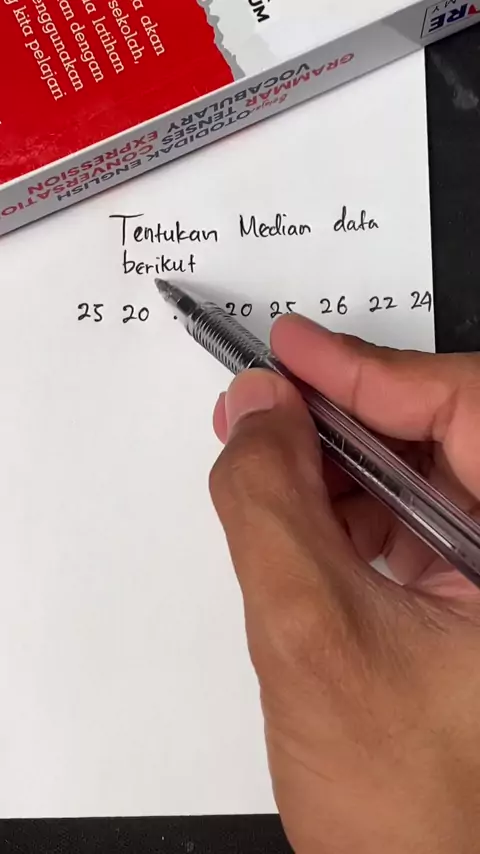 a akan
sekolah,
a latihan
an dengan
enggunakan
g kita pelajari
UM
RE
MY
GRAMMAR
VOCABULARY
Belajar OTODIDAK TENSES
ENGLISH CONVERSATIO
EXPRESSION
Tentukan Median data
berikut
25 20 20 25 26 22 24